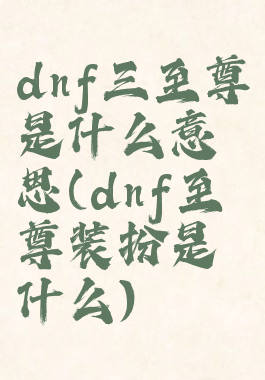 dnf三至尊
是什么意
思(dnf至
尊装扮是
什么)